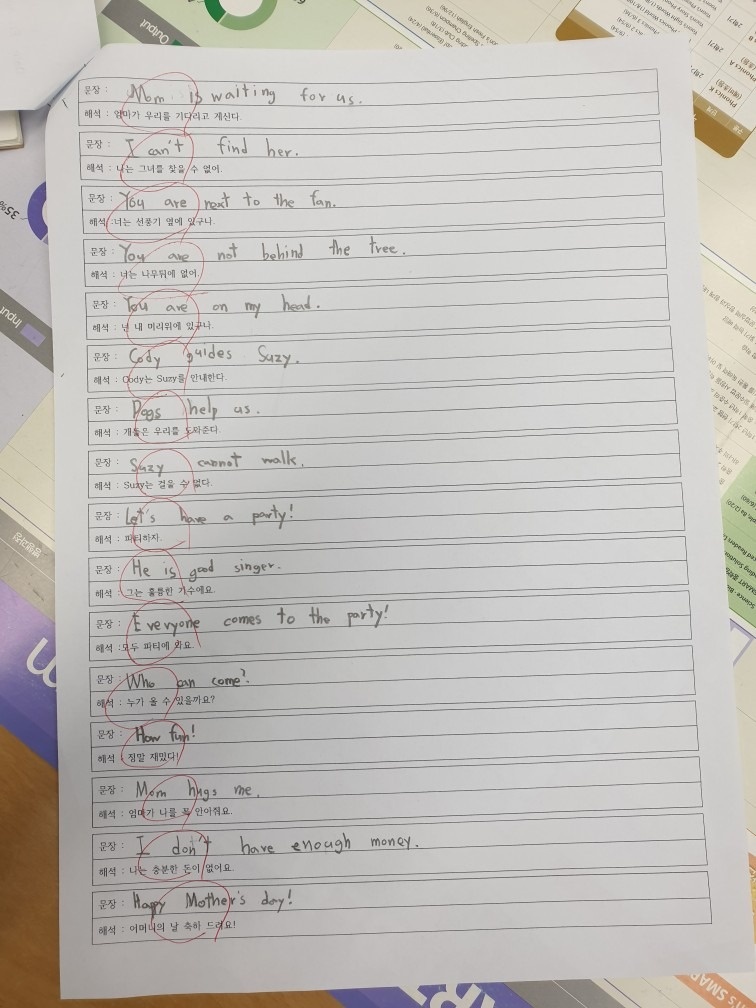 문장 : Mom is waiting for us.
해석 : 엄마가 우리를 기다리고 계신다.
문장 : I can't find her.
해석 : 나는 그녀를 찾을 수 없어.
문장 : You are next to the fan.
해석 : 너는 선풍기 옆에 있구나.
문장 : You are not behind the tree.
해석 : 너는 나무뒤에 없어.
문장 : You are on my head.
해석 : 넌 내 머리위에 있구나.
문장 : Cody guides Suzy.
해석 : Cody는 Suzy를 안내한다.
문장 : Dogs help us.
해석 : 개들은 우리를 도와준다.
문장 : Suzy cannot walk.
해석 : Suzy는 걸을 수 없다.
문장 : Let's have a party!
해석 : 파티하자.
문장 : He is good singer.
해석 : 그는 훌륭한 가수에요.
문장 : Everyone comes to the party!
해석 : 모두 파티에 와요.
문장 : Who can come?
해석 : 누가 올 수 있을까요?
문장 : How fun!
해석 : 정말 재밌다!
문장 : Mom hugs me.
해석 : 엄마가 나를 꼭 안아줘요.
문장 : I don't have enough money.
해석 : 나는 충분한 돈이 없어요.
문장 : Happy Mother's day!
해석 : 어머니의 날 축하 드려요!
Output
35%
Input
Phonics K
Phonics A